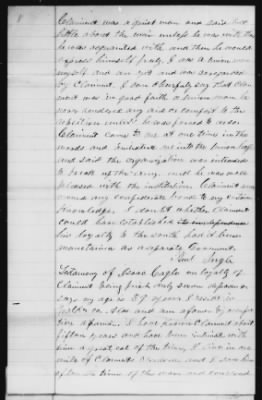 8
Claimant was a quiet man and said but
little about the war unless he was with those
he was acquainted with and then he would
express himself freely. I was a Union man
myself and am yet and was so regarded
by Claimant. I can cheerfully say that Claim
ant was in good faith a Union man he
never rendered any aid or comfort to the
rebellion unless he was forced to do so.
Claimant came to me at one time in the
woods and me into the Union League
and said the organization was intended
to break up the army and he was well
pleased with the institution. Claimant never
owned any confederate bonds to my certain
knowledge. I doubt whether Claimant
could have established his
his loyalty to the south had it been
maintained as a separate Government.
Paul Ingle
Testimony of Isaac Cagle on loyalty of
Claimant being first duly sworn deposes &
says my age is 59 years I reside in
co. Ala and am a farmer by occupa
tion. I have known Claimant about
fifteen years and have been intimate with
him a great eal of the time, I live in one
mile of Claimants residence and I saw him
often in time of the war and conversed